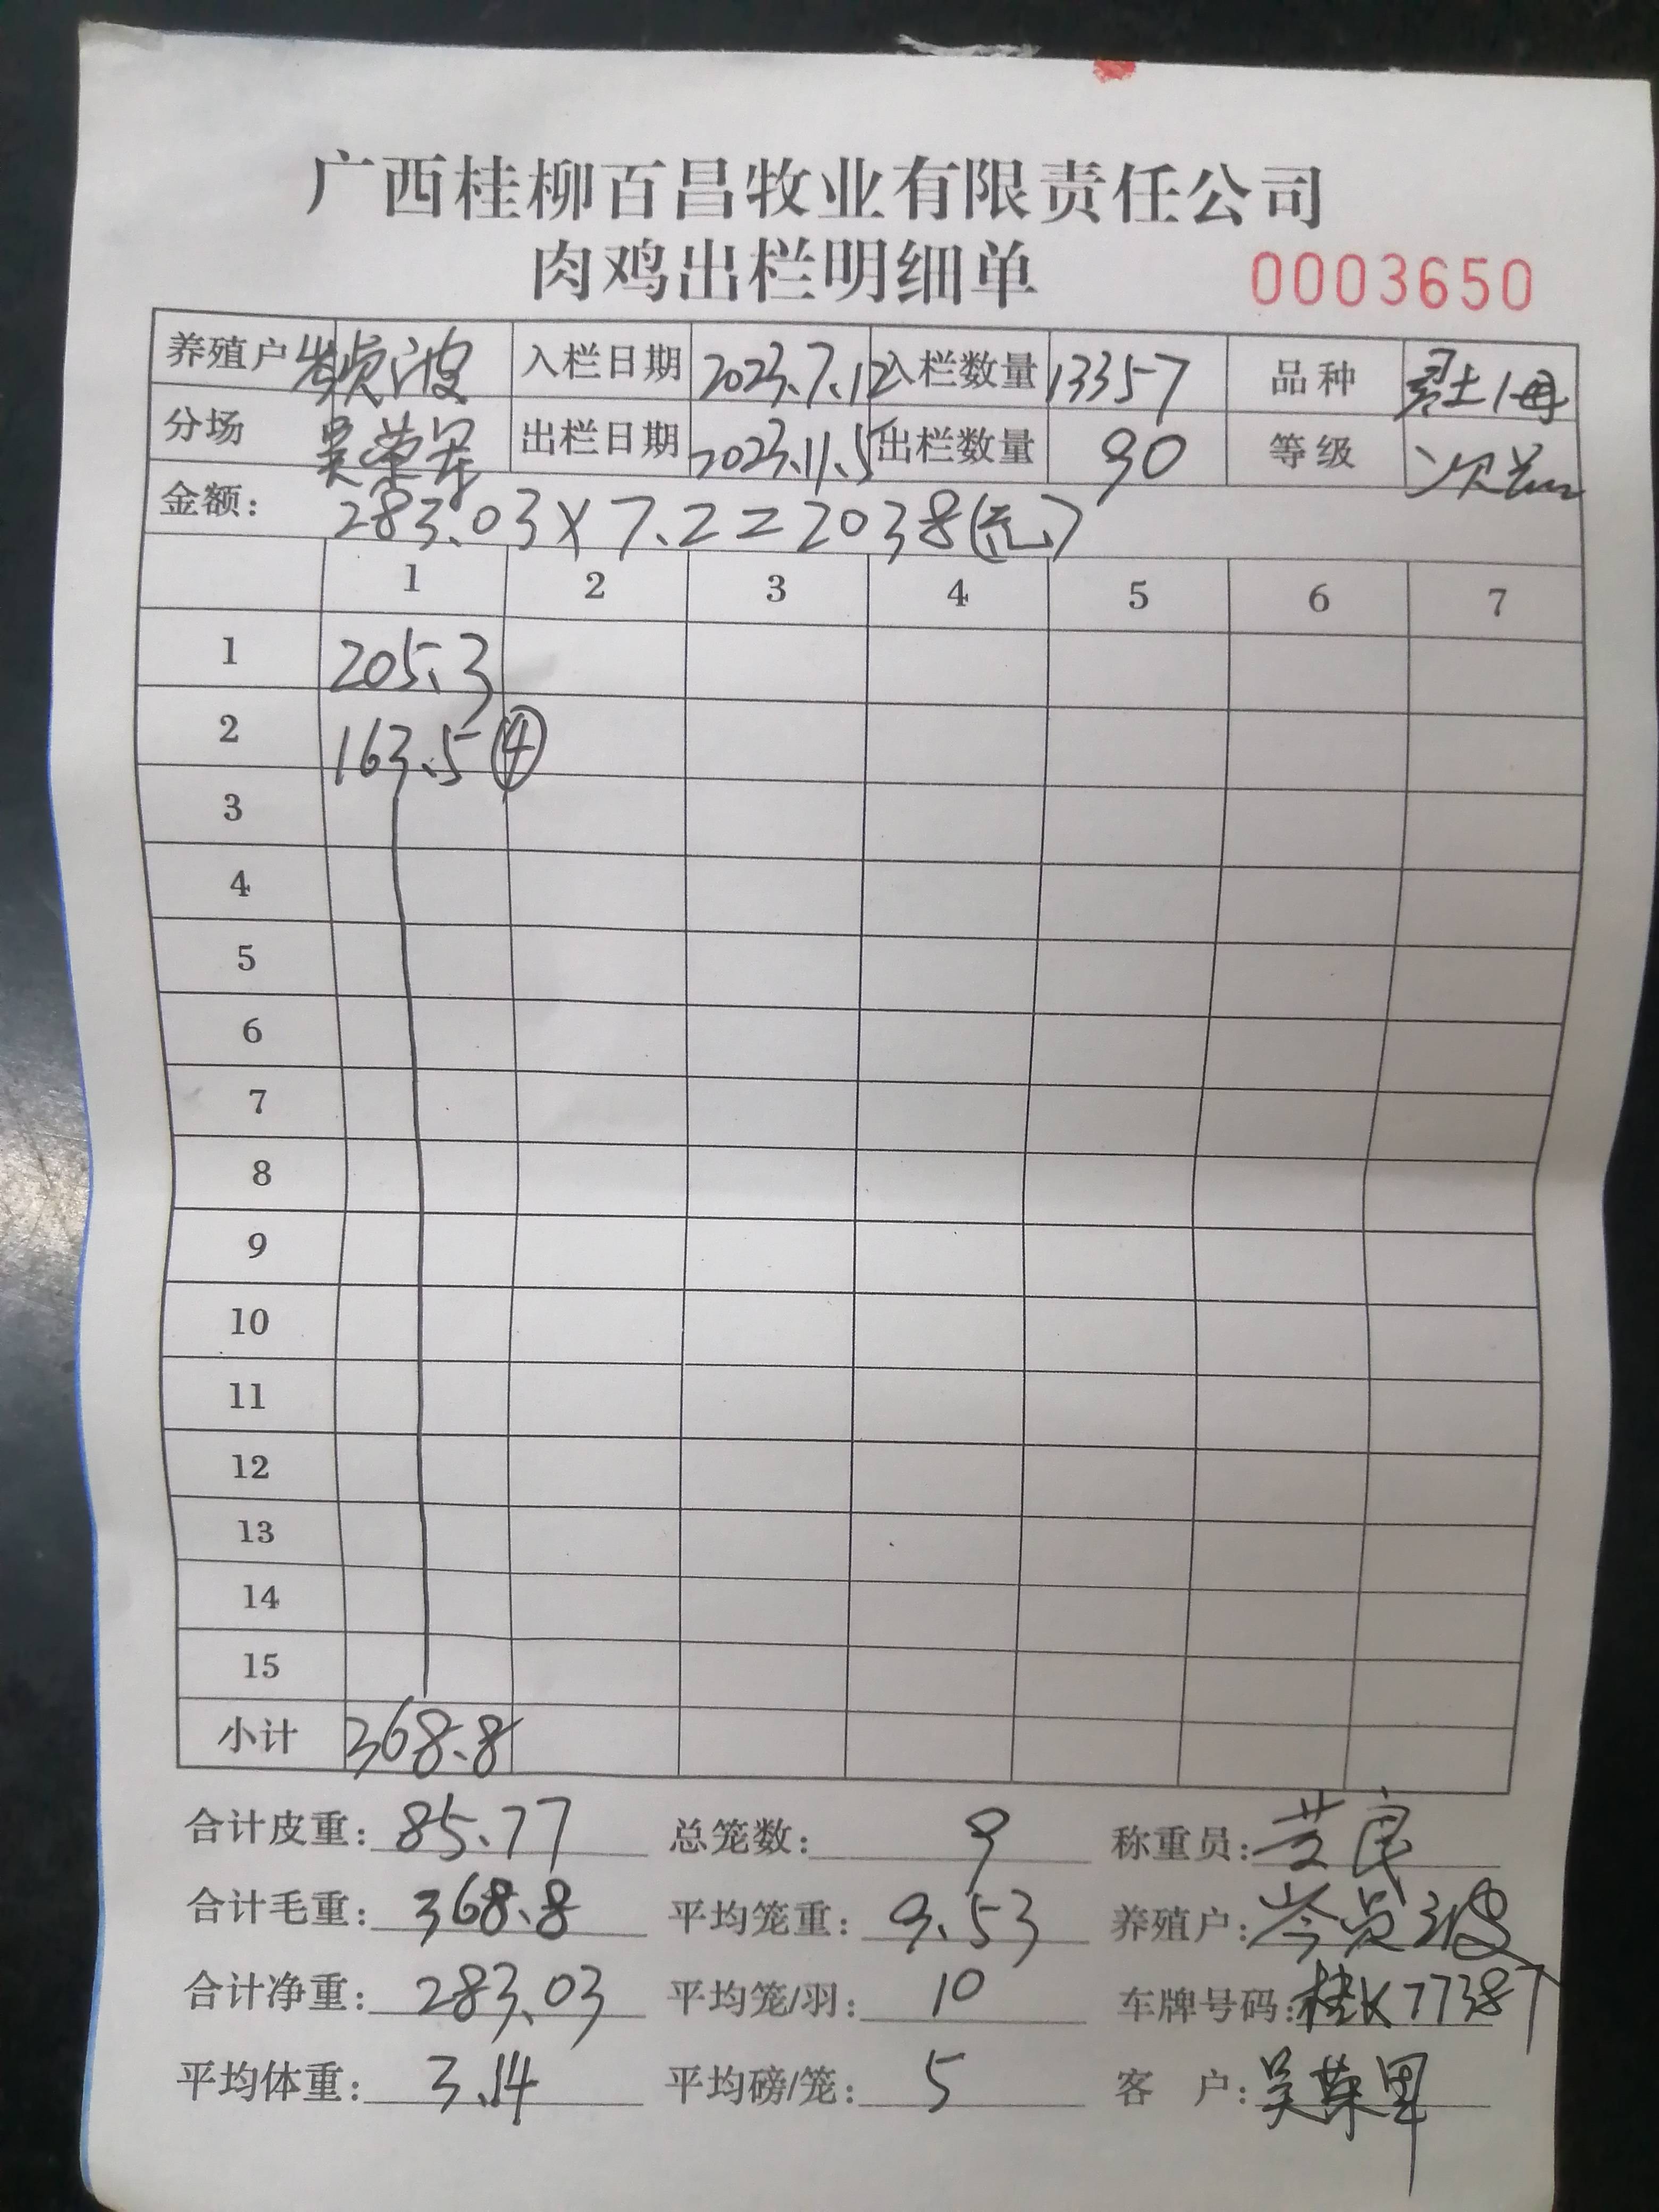 广西桂柳百昌牧业有限责任公司
肉鸡出栏明细单 0003650
养殖户 入栏日期 2023.7.12 入栏数量 13357 品种 土1母
分场 吴荣军 出栏日期 2023.11.5 出栏数量 90 等级 次
金额: 283.03×7.2=2038(元)
1 2 3 4 5 6 7
1 205.3
2 163.5 ④
3
4
5
6
7
8
9
10
11
12
13
14
15
小计 368.8
合计皮重: 85.77 总笼数: 9 称重员:
合计毛重: 368.8 平均笼重: 9.53 养殖户: 岑贞波
合计净重: 283.03 平均笼/羽: 10 车牌号码: 桂K77387
平均体重: 3.14 平均磅/笼: 5 客 户: 吴荣军